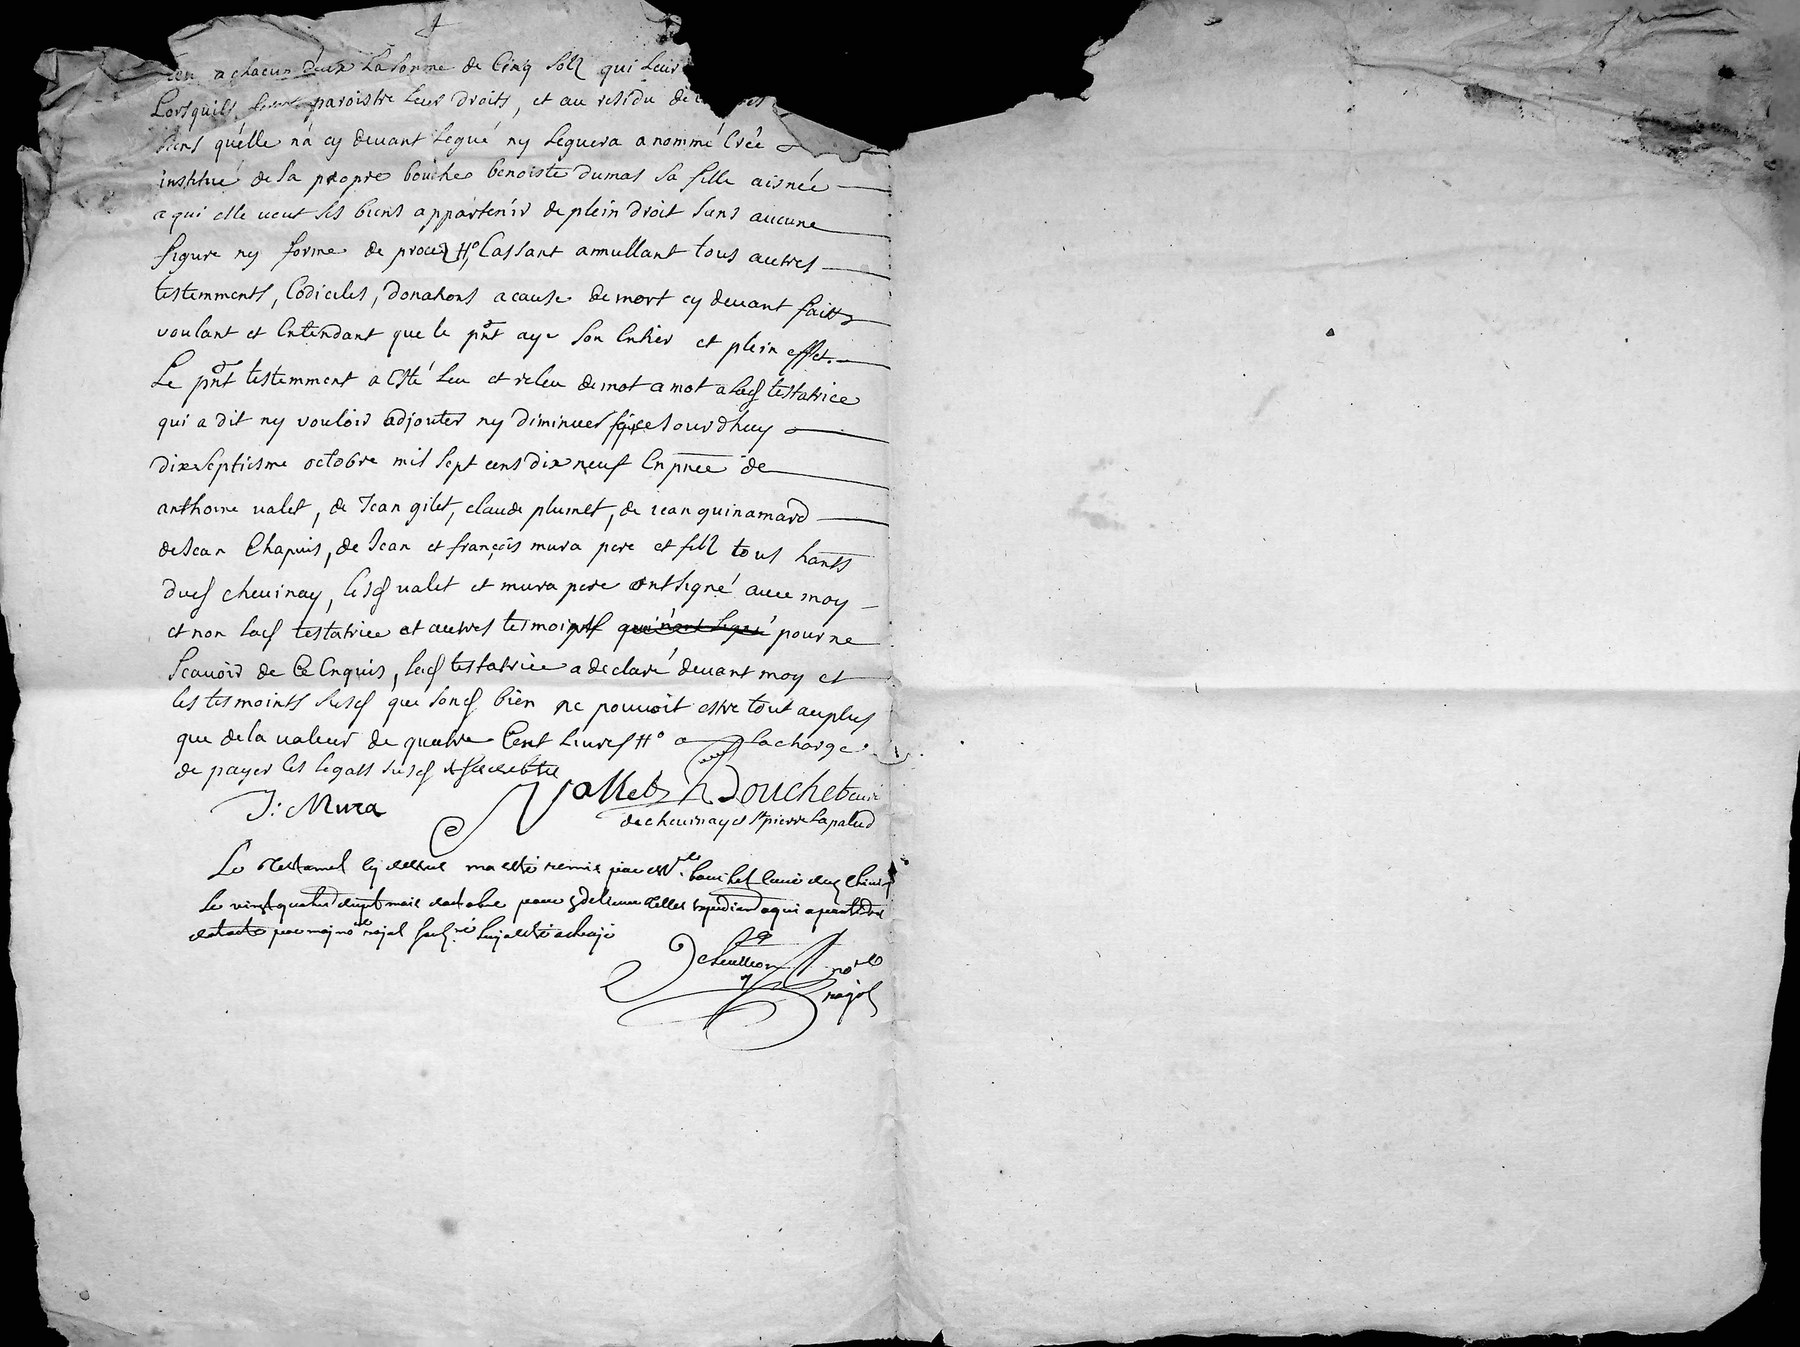 a chacun deux La somme de Cinq solz qui Leur
Lorsquils feront paroistre Leur droits, et au residu de
biens quélle n'a cy deuant Legué ny Leguera a nommé Créé
institué de sa propre bouche benoiste dumas sa fille aisnée
a qui elle ueut ses biens appartenir de plein droit sans aucune
figure ny forme de procez Cassant annullant tous autres
testemments, Codiciles, donations a cause de mort cy deuant faitts
voulant et Entendant que le pnt aye son Entier et plein effet.
Le pnt testemment a Esté Leu et releu de mot a mot a Lad testatrice
qui a dit ny vouloir adjouter ny diminuer
dixseptiesme octobre mil sept cens dix neuf En pnce de
anthoine valet, de Jean gilet, claude plumet, de iean guinamard
de Jean Chapuis, de Jean et françois mura pere et filz tous hants
dud cheuinay, lesd valet et mura pere ont signé auec moy
et non Lad testatrice et autres tesmoints pour ne
Scauoir de Ce Enquis, Lad testatrice a declaré deuant moy et
les tesmoints susd que sond bien ne pouuoit estre tout au plus
que de la valeur de quatre Cent Liures a la charge
de payer les legats susd
J: Mura Vallet Bouchet curé
de cheuinay et St pierre Lapalud
Le Testament cy dessus ma esté remis par Bouchet Curé
Le vingt quatre octobre pour
par moy royal
no.re
royal